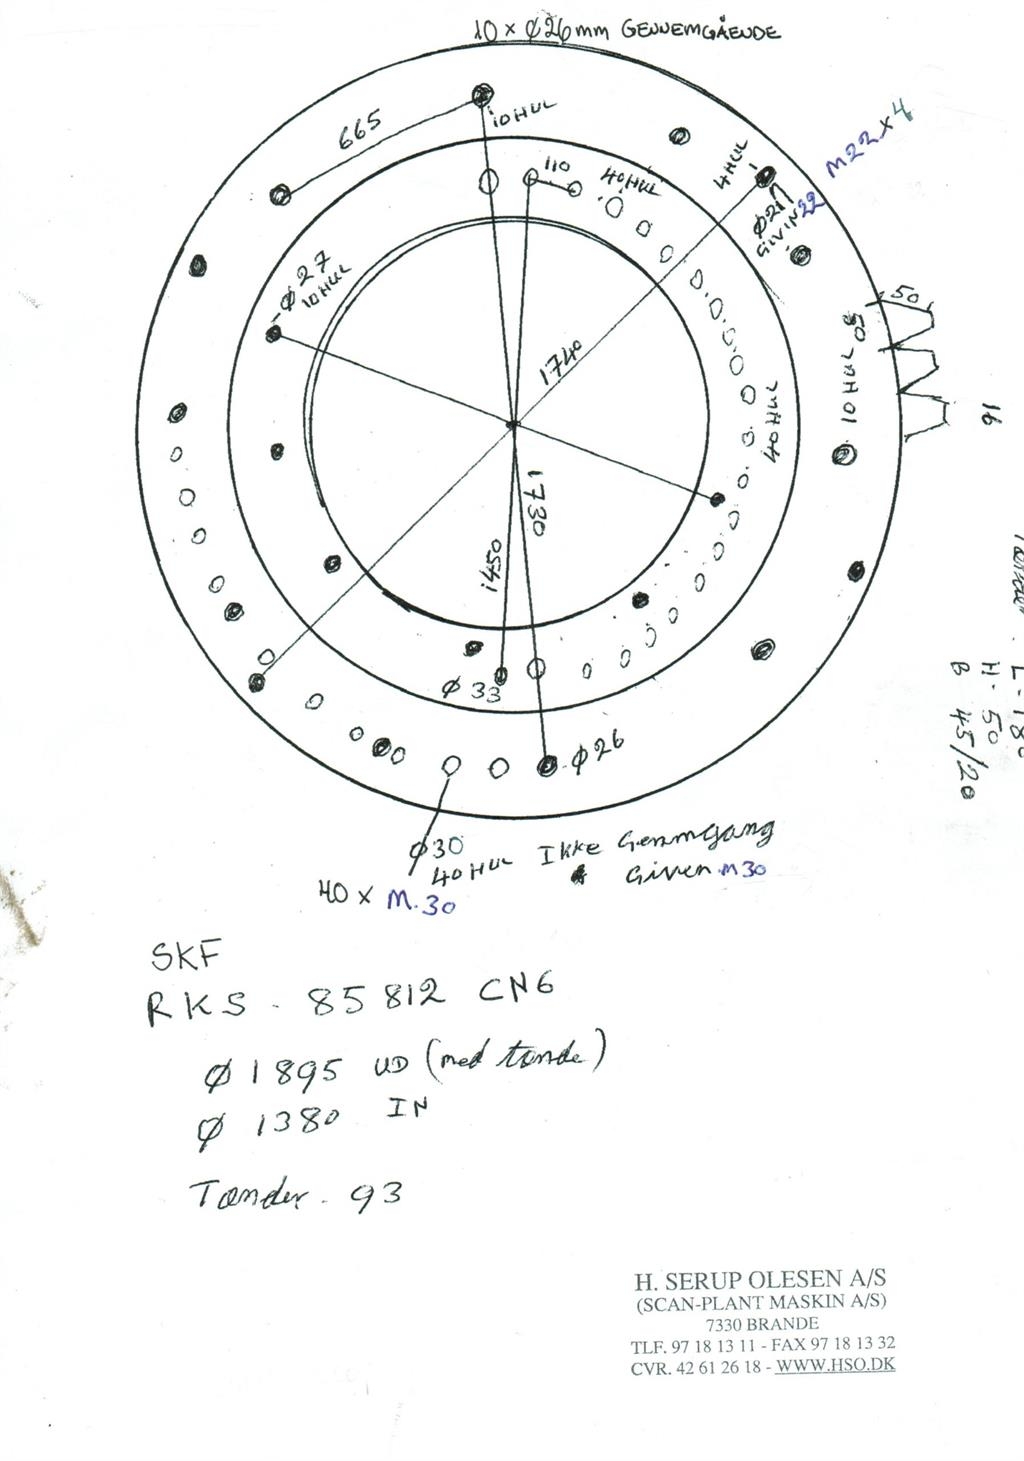 10 x Ø26mm GENNEMGÅENDE
665
10 HUL
110
40 HUL
4 HUL
M22 x 4
GEVIN 22
Ø27
10 HUL
50
50
10 HUL
16
1740
40 HUL
1730
1450
L - 180
H - 50
B 45/20
Ø 33
Ø26
Ø30
40 HUL Ikke Genmgang
Given M30
40 x M.30
SKF
RKS - 85812 CN6
Ø 1895 UD (med tande)
Ø 1380 IN
Tander - 93
H. SERUP OLESEN A/S
(SCAN-PLANT MASKIN A/S)
7330 BRANDE
TLF. 97 18 13 11 - FAX 97 18 13 32
CVR. 42 61 26 18 - WWW.HSO.DK